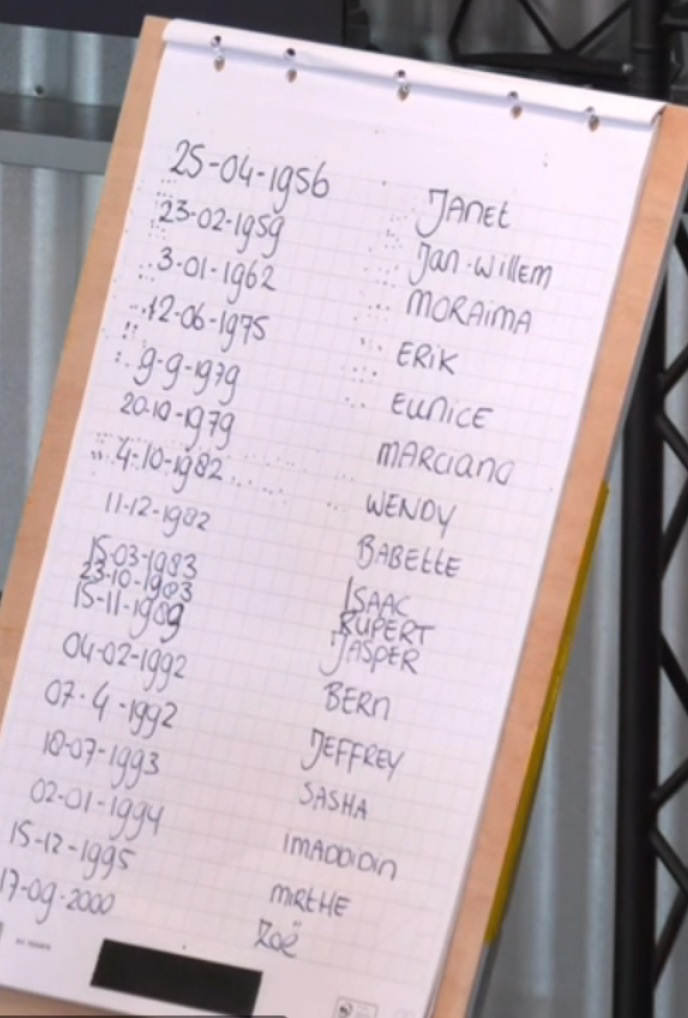 25-04-1956 JANEt
23-02-1959 Jan-Willem
3-01-1962 MORAiMA
12-06-1975 ERiK
9-9-1979 EUNiCE
20-10-1979 MARCiANO
4-10-1982 WENDY
11-12-1982 BABEttE
15-03-1983 ISAAC
23-10-1983 RUPERT
15-11-1989 JASPER
04-02-1992 BERN
07-4-1992 JEFFREY
18-07-1993 SASHA
02-01-1994 IMADDIDIN
15-12-1995 MIRtHE
17-09-2000 Zoë